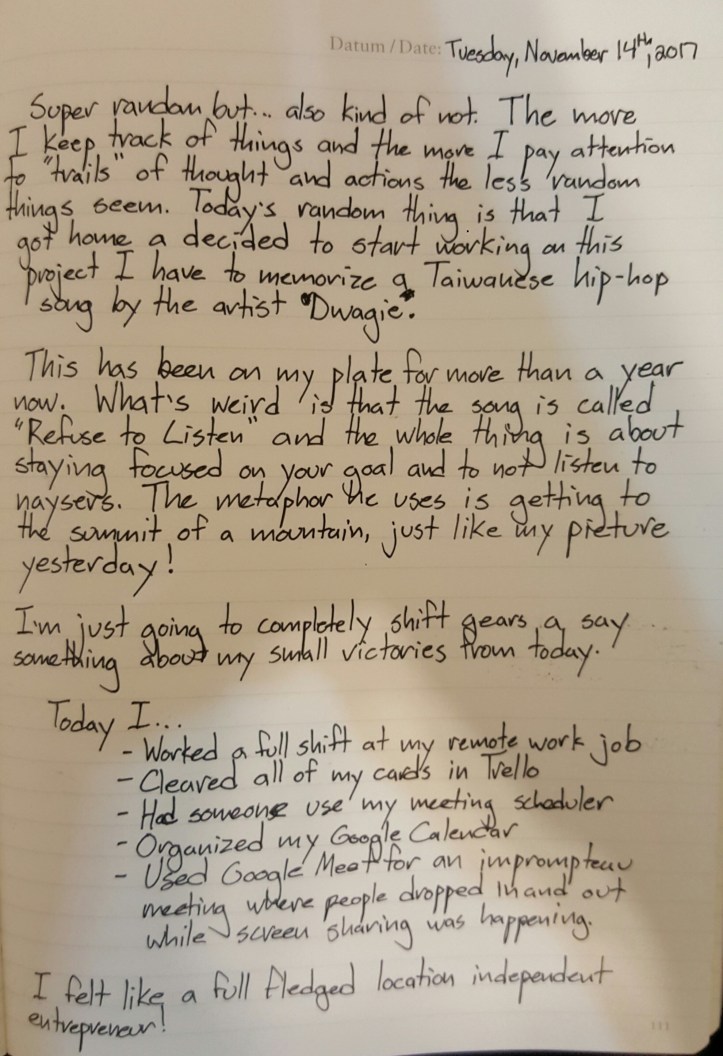 Datum / Date: Tuesday, November 14th, 2017
Super random but... also kind of not. The more
I keep track of things and the more I pay attention
to "trails" of thought and actions the less random
things seem. Today's random thing is that I
got home a decided to start working on this
project I have to memorize a Taiwanese hip-hop
song by the artist "Dwagie".
This has been on my plate for more than a year
now. What's weird is that the song is called
"Refuse to Listen" and the whole thing is about
staying focused on your goal and to not listen to
naysers. The metaphor he uses is getting to
the summit of a mountain, just like my picture
yesterday!
I'm just going to completely shift gears a say
something about my small victories from today.
Today I...
- Worked a full shift at my remote work job
- Cleared all of my cards in Trello
- Had someone use my meeting scheduler
- Organized my Google Calendar
- Used Google Meet for an imprompteau
meeting where people dropped in and out
while screen sharing was happening.
I felt like a full fledged location independent
entrepreneur!
111